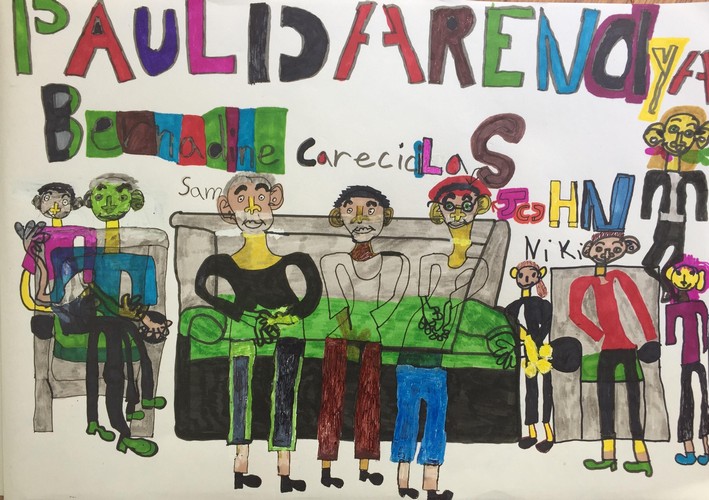 PAUL IDA ARENdyA
Bernadine CarecidLaS
Sam JoHN
Niki